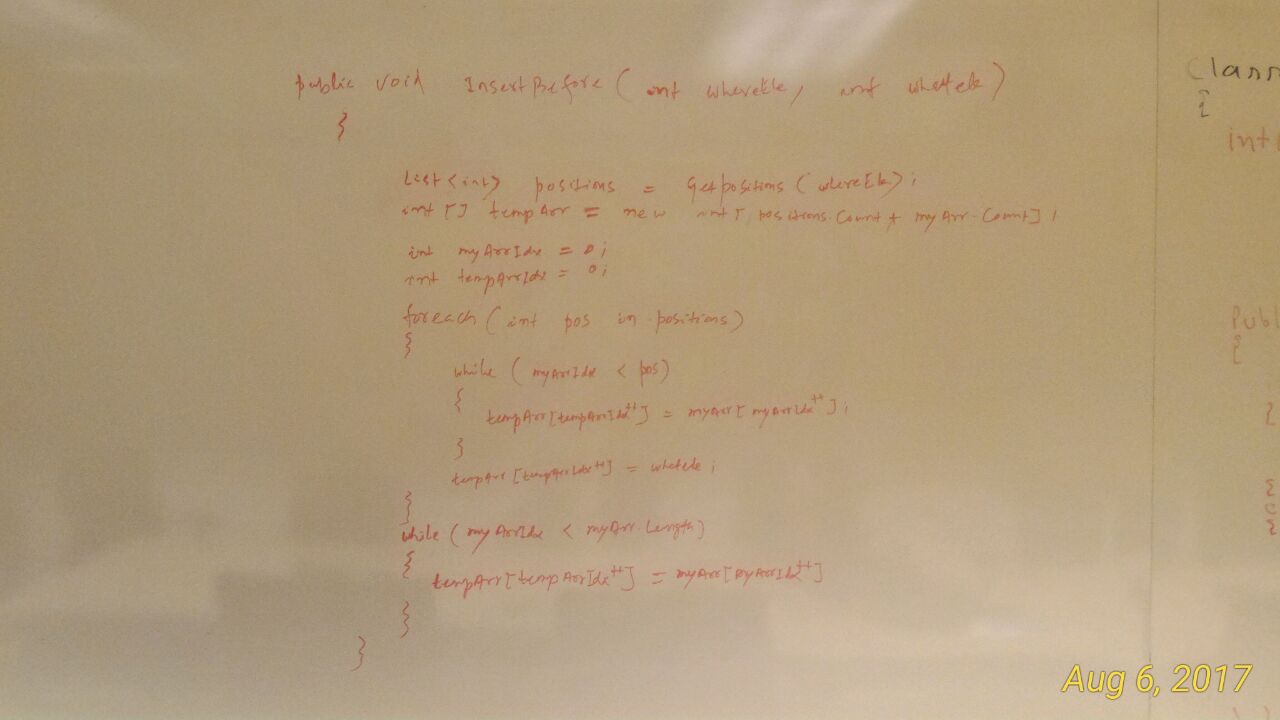 public void InsertBefore( int whereEle, int whatele)
{
List<int> positions = Getpositions (whereEle);
int [] tempArr = new int [ positions.Count + myArr.Count] ;
int myArrIdx = 0;
int tempArrIdx = 0;
foreach ( int pos in positions)
{
while ( myArrIdx < pos)
{
tempArr[tempArrIdx++] = myArr[ myArrIdx++] ;
}
tempArr [tempArrIdx++] = whatele ;
}
while ( myArrIdx < myArr.Length)
{
tempArr[tempArrIdx++] = myArr[myArrIdx++]
}
}
Class
{
int
Publ
{
}
}
{
}
Aug 6, 2017